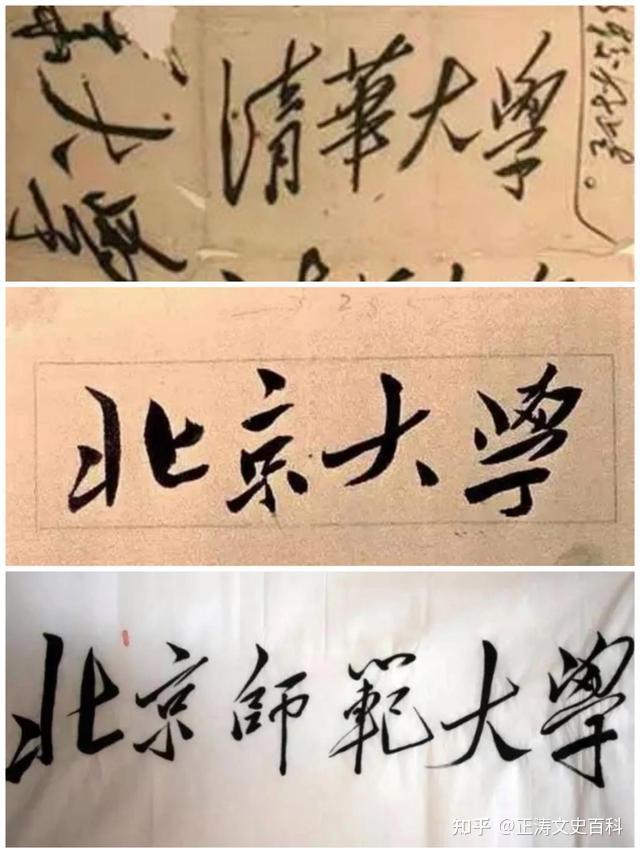 清華大學
北京大學
北京師範大學
知乎 @正涛文史百科